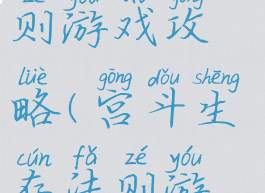 zé yóu xì gōng
则游戏攻
lüè gōng dǒu shēng
略(宫斗生
cún fǎ zé yóu
存法则游